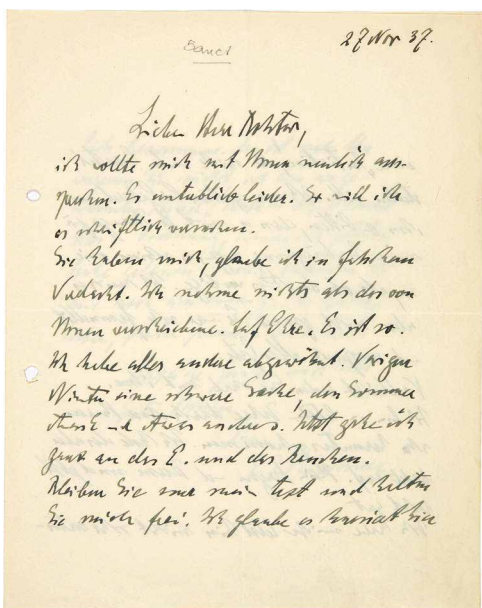 Sanct
27 Nov 37.
Lieber Herr Doktor,
ich wollte mich mit Ihnen neulich aus-
sprechen. Es unterblieb leider. So will ich
es schriftlich versuchen.
Sie haben mich, glaube ich in falschem
Verdacht. Ich nehme nichts als das von
Ihnen verschriebene. Auf Ehre. Es ist so.
Ich habe alles andere abgewöhnt. Vorigen
Winter eine schwere Sache, den Sommer
etwas E und etwas anderes. Jetzt gehe ich
ganz an das E. und das
Bleiben Sie nur mein und halten
Sie mich frei. Ich glaube es Sie